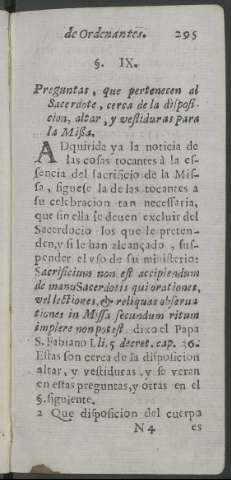 de Ordenantes. 295
§. IX.
Preguntas, que pertenecen al
Sacerdote, cerca de la disposi-
cion, altar, y vestiduras para
la Missa.
ADquirida ya la noticia de
las cosas tocantes à la es-
sencia del sacrificio de la Mis-
sa, siguese la de las tocantes a
su celebracion tan necessaria,
que sin ella se deuen excluir del
Sacerdocio los que le preten-
den, y si le han alcançado, sus-
pender el vso de su ministerio:
Sacrificium non est accipiendum
de manu Sacerdotis qui orationes,
vel lectiones, & reliquas obserua
tiones in Missa secundum ritum
implere non potest. dixo el Papa
S. Fabiano I. li. 5 decret. cap. 36.
Estas son cerca de la disposicion
altar, y vestiduras, y se veran
en estas preguntas, y otras en el
§. siguiente.
2 Que disposicion del cuerpo
N4 es